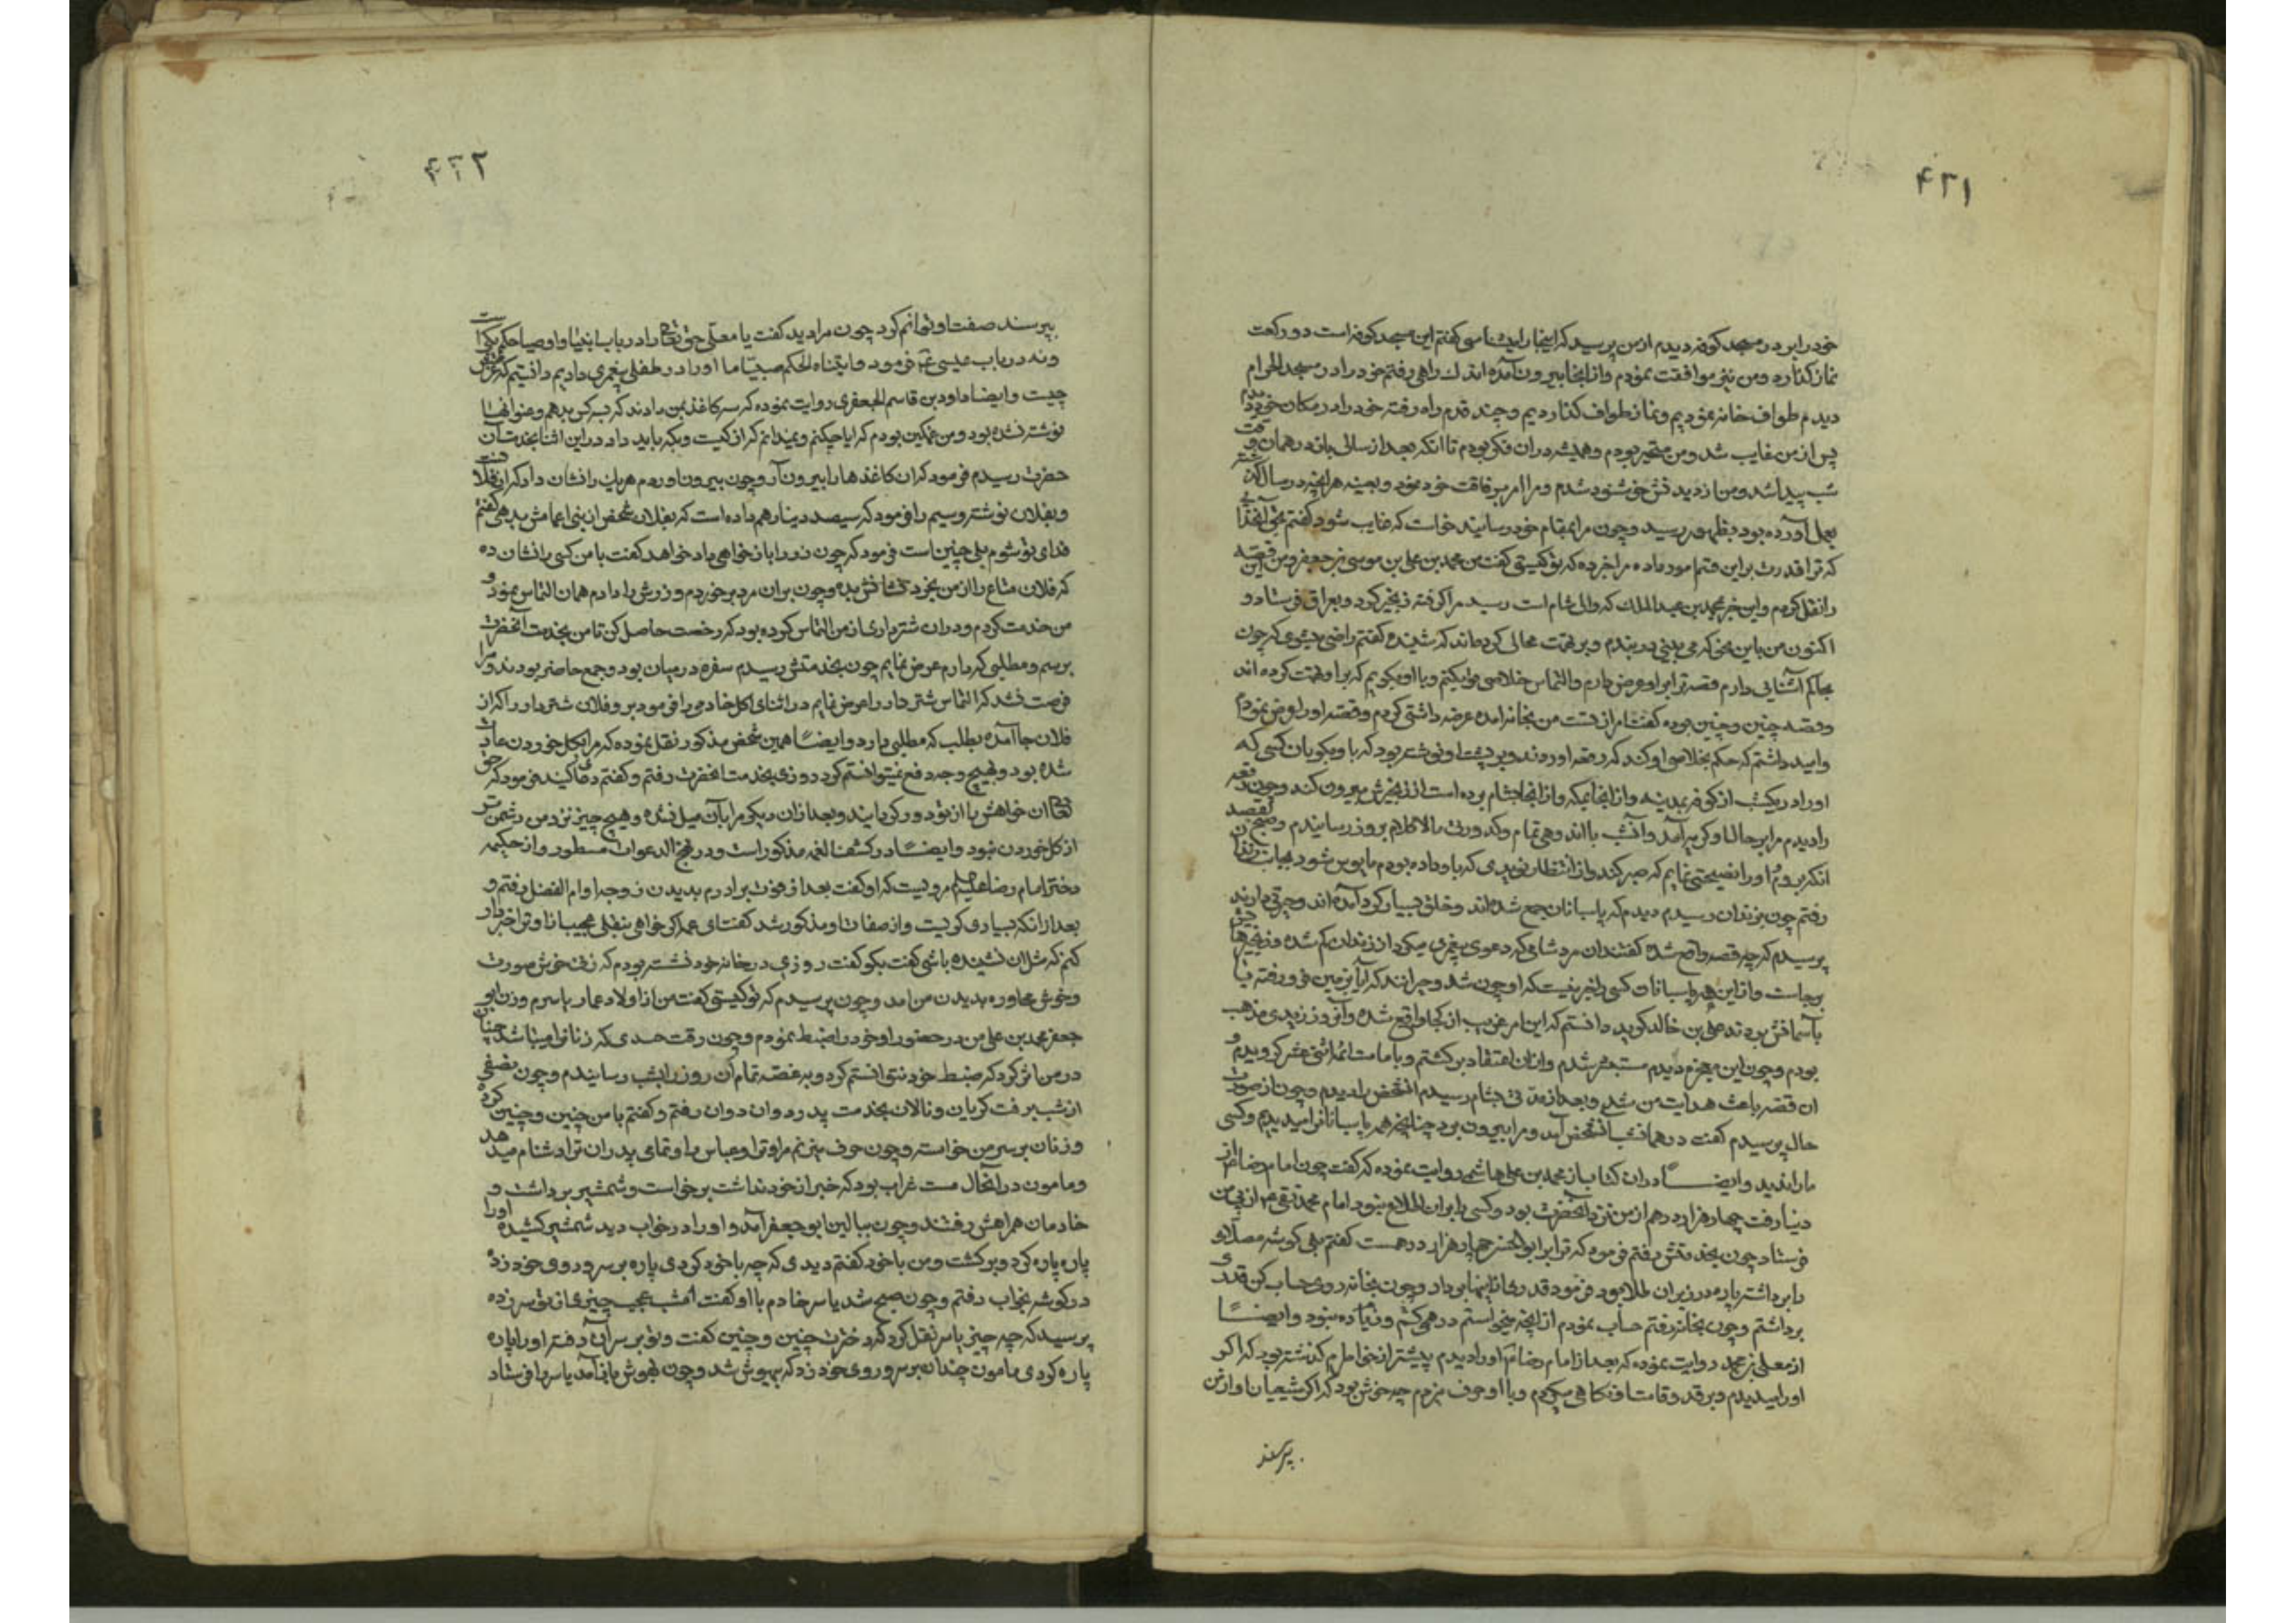 ۴۲۱
خود را بر در مسجد کوفه دیدم از من پرسید که اینجا را میشناسی گفتم این مسجد کوفه است دو رکعت
نماز کذارد و من نیز موافقت نمودم و از انجا بیرون آمده اندک راهی رفتم خود را در مسجد الحرام
دیدم طواف خانه نمودیم و نماز طواف کذاردیم و چند قدم راه رفته خود را در مکان خود دیدم
پس از من غایب شد و من متحیر بودم و همیشه در ان فکر بودم تا انکه بعد از سالی باز در همان وقت
شب پیدا شد و من از دیدنش خوشنود شدم و مرا امر بر فاقت خود نمود و بعینه هر انچه در سال گذشته
بعمل آورده بود بظهور رسید و چون مرا بمقام خود رسانید خواست که غایب شود گفتم بحق آنخدائی
که ترا قدرت بر این قسم امور داده مرا خبر ده که تو کیستی گفت من محمد بن علی بن موسی بن جعفرم من این قصه
را نقل کردم و این خبر بمحمد بن عبد الملک که والی شام است رسید مرا گرفته زنجیر کرد و بعراق فرستاد و
اکنون من باین نحو که می بینی در بندم و بر من تهمت محالی کرده اند که شنیده گفتم راضی میشوی که چون
بحاکم آشنائی دارم قصه ترا بر او عرض دارم و التماس خلاصی ترا بکنم و با او بکویم که بر او تهمت کرده اند
و قصه چنین و چنین بوده گفت از تست من بخانه امده عرضه داشتی کردم و قصه او را عرض نمودم
و امید داشتم که حکم بخلاصی او کند که رقعه اوردند و بر پشت او نوشته بود که باو بکو بان کسی که
او را در یکشب از کوفه بمدینه و از انجا بمکه و از انجا بشام برده است از زنجیرش بیرون کند و چون رقعه
را دیدم مرا بر حال او کریه آمد و آنشب با اندوهی تمام و کدورتی بالا کلام بروز رسانیدم و صبح بقصد
انکه بروم و او را نصیحتی نمایم که صبر کند و از انتظار نویدی که باو داده بودم مایوس شود بجانب زندان
رفتم چون بزندان رسیدم دیدم که پاسبانان جمع شده اند و خلق بسیار کرد آمده اند و حیرتی دارند
پرسیدم که چه قصه واقع شده گفتند ان مرد شامی که دعوی پیغمبری میکرد از زندان کم شده و زنجیرهایش
بر جاست و از این همه پاسبانان کسی را خبر نیست که او چون شد و حیرانند که آیا بزمین فرو رفته یا
بآسمانش بردند علی بن خالد کوید دانستم که این امر غریب از کجا واقع شده و آنروز زیدی مذهب
بودم و چون این معجزه دیدم مستبصر شدم و از ان اعتقاد بر کشتم و بامامت ائمه اثنی عشر کرویدم و
ان قصه باعث هدایت من شد و بعد از مدتی بشام رسیدم انشخص را دیدم و چون از صورت
حال پرسیدم گفت در همانشب انشخص آمد و مرا بیرون برد چنانچه همه پاسبانانرا میدیدیم و کسی
ما را ندید و ایضا در ان کتاب از محمد بن علی هاشمی روایت نموده که گفت چون امام رضا ع از
دنیا رفت چهار هزار درهم از من نزد آنحضرت بود و کسی را بر ان اطلاع نبود امام محمد تقی ع از پی من
فرستاد چون بخدمتش رفتم فرمود که ترا بر ابو الحسن چهار هزار درهمست گفتم بلی کوشه مصلای
را برداشته پاره زر زیر ان طلا بود فرمود قدری از اینها بردار و چون بخانه روی حساب کن قدری
برداشتم و چون بخانه رفتم حساب نمودم از انچه میخواستم درهمی کم و زیاده نبود و ایضا
از معلی بن محمد روایت نموده که بعد از امام رضا ع او را دیدم پیشتر از خواطرم کذشته بود که اکر
او را ببینم و بر قد و قامت او نکاهی میکردم و با او حرف میزدم چه خوش بود که اکر شیعیان او از من
بپرسند
۴۲۲
بپرسند صفت او توانم کرد چون مرا دید گفت یا معلی حق تعالی را در باب انبیا و اوصیا حکم یکیست
و نه در باب عیسی ع فرمود و اتیناه الحکم صبیا ما او را در طفلی پیغمبری دادیم دانستیم که غرضش
چیست و ایضا داود بن قاسم الجعفری روایت نموده که سه کاغذ بمن دادند که بسه کس بدهم و عنوانها
نوشته نشده بود و من غمکین بودم که ایا چکنم و نمیدانم که از کیست و بکه باید داد در این اثنا بخدمت آن
حضرت رسیدم فرمود که ان کاغذ ها را بیرون آر و چون بیرون اوردم هر یک را نشان داد که از فلانست
و بفلان نوشته و سیم را فرمود که سیصد دینار هم داده است که بفلان شخص از بنی اعمامش بدهی گفتم
فدای تو شوم بلی چنین است فرمود که چون زر را باز خواهی داد خواهد گفت با من کسی را نشان ده
که فلان متاع را از من بخرد نشانش بده و چون بر ان مرد بر خوردم و زرش را دادم همان التماس نمود و
من خدمت کردم و در ان شتر داری از من التماس کرده بود که رخصت حاصل کن تا من بخدمت آنحضرت
برسم و مطلبی که دارم عرض نمایم چون بخدمتش رسیدم سفره در میان بود و جمع حاضر بودند و مرا
فرصت نشد که التماس شتر دار را عرض نمایم در اثنای اکل خادمی را فرمود برو فلان شتر دار را که از
فلان جا آمده بطلب که مطلبی دارد و ایضا همین شخص مذکور نقل نموده که مرا بکل خوردن عادت
شده بود و بهیچ وجه دفع نمیتوانستم کرد روزی بخدمت انحضرت رفتم و گفتم دعا کنید فرمود که حق
تعالی ان خواهش را از تو دور کرداند و بعد از ان دیکر مرا بآن میل نشده و هیچ چیز نزد من دشمن تر
از کل خوردن نبود و ایضا در کشف الغمه مذکور است و در مهج الدعوات مسطور و از حکیمه
دختر امام رضا علیه السلم مرویست که او گفت بعد از فوت برادرم بدیدن زوجه او ام الفضل رفتم و
بعد از انکه بسیاری کریست و از صفات او مذکور شد گفت ای عمه اکر خواهی بنقلی عجیب از او ترا خبردار
کنم که مثل ان نشنیده باشی گفت بکو گفت روزی در خانه خود نشسته بودم که زنی خوش صورت
و خوش محاوره بدیدن من امد و چون پرسیدم که تو کیستی گفت من از اولاد عمار یاسرم و زن ابو
جعفر محمد بن علی من در حضور او خود را ضبط نمودم و چون رفت حسدی که زنانرا میباشد چنان
در من اثر کرد که ضبط خود نتوانستم کرد و به غصه تمام آن روز را بشب رسانیدم و چون نصفی
از شب برفت کریان و نالان بخدمت پدر دوان دوان رفتم و گفتم با من چنین و چنین کرده
و زنان بر سر من خواسته و چون حرف میزنم مرا و ترا و عباس را و تمای پدران ترا دشنام میدهد
و مامون در آنحال مست غراب بود که خبر از خود نداشت برخواست و شمشیر برداشت و
خادمان همراهش رفتند و چون ببالین ابو جعفر آمد و او را در خواب دید شمشیر کشیده او را
پاره پاره کرد و بر کشت و من با خود گفتم دیدی که چه با خود کردی پاره بر سر و روی خود زده
در کوشه بخواب رفتم و چون صبح شد یاسر خادم با او گفت امشب عجیب چیزی از تو سر زده
پرسید که چه چیز یاسر نقل کرد که دخترت چنین و چنین گفت و تو بر سر آن رفته او را پاره
پاره کردی مامون چندان بر سر و روی خود زد که بیهوش شد و چون بهوش باز آمد یاسر را فرستاد